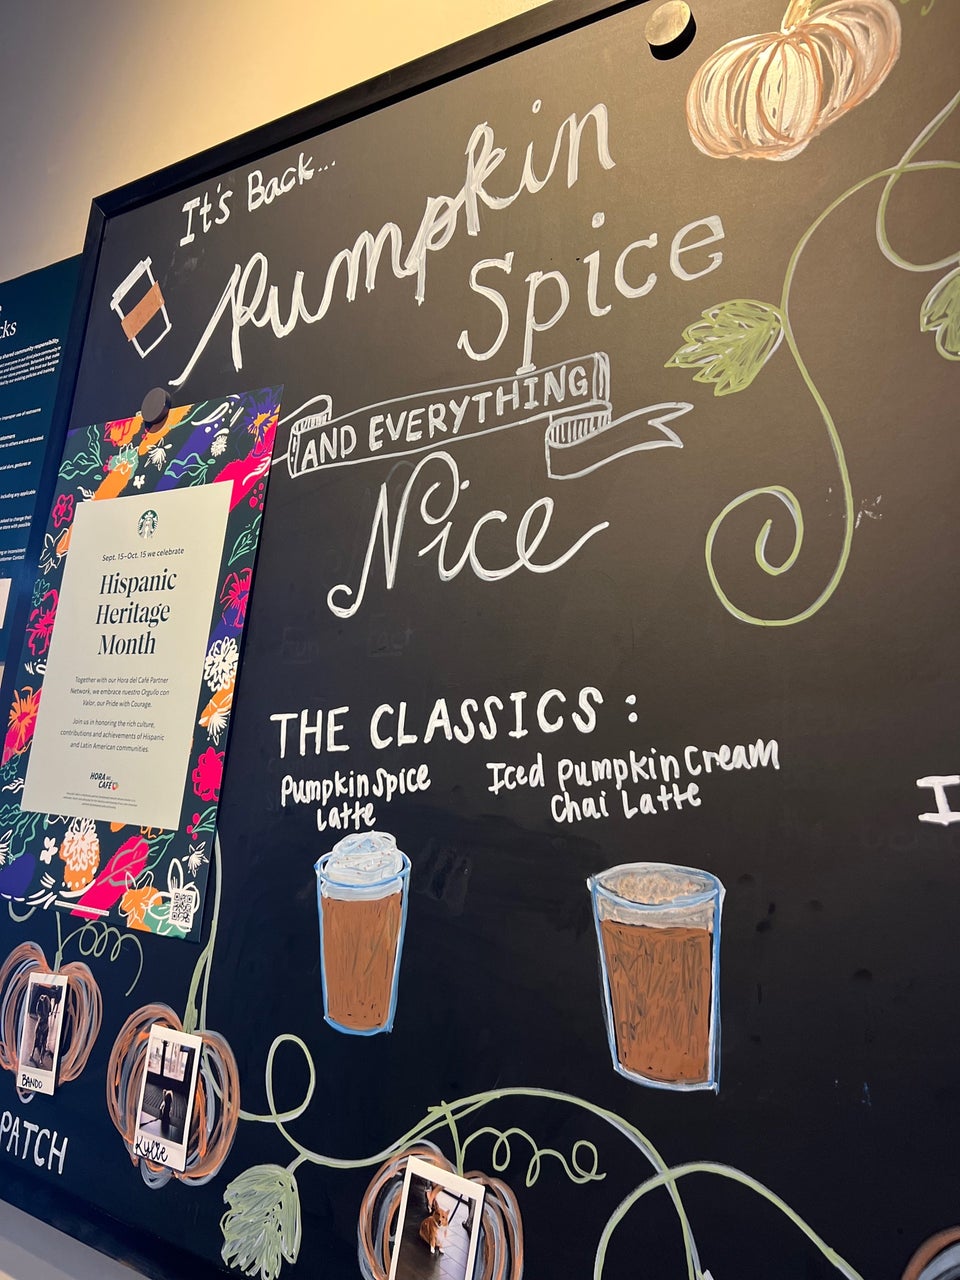 It's Back...
Pumpkin
Spice
AND EVERYTHING
Nice
Sept. 15–Oct. 15 we celebrate
Hispanic
Heritage
Month
Together with our Hora del Café Partner
Network, we embrace nuestro Orgullo con
Valor, our Pride with Courage.
Join us in honoring the rich culture,
contributions and achievements of Hispanic
and Latin American communities.
HORA DEL
CAFÉ
THE CLASSICS :
Pumpkin Spice
Latte
Iced Pumpkin Cream
Chai Latte
I
BANDO
Kylie
PATCH